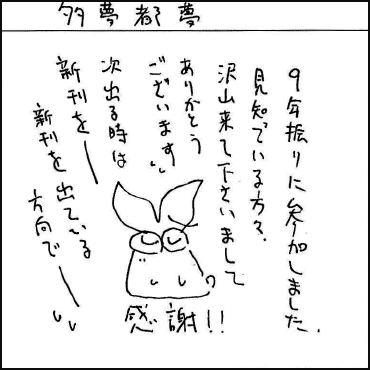 多夢都夢
9年振りに参加しました、
見知っている方々、
沢山来て下さいまして
ありがとう
ございます
次出る時は
新刊をー
新刊を出ている
方向でー
感謝!!